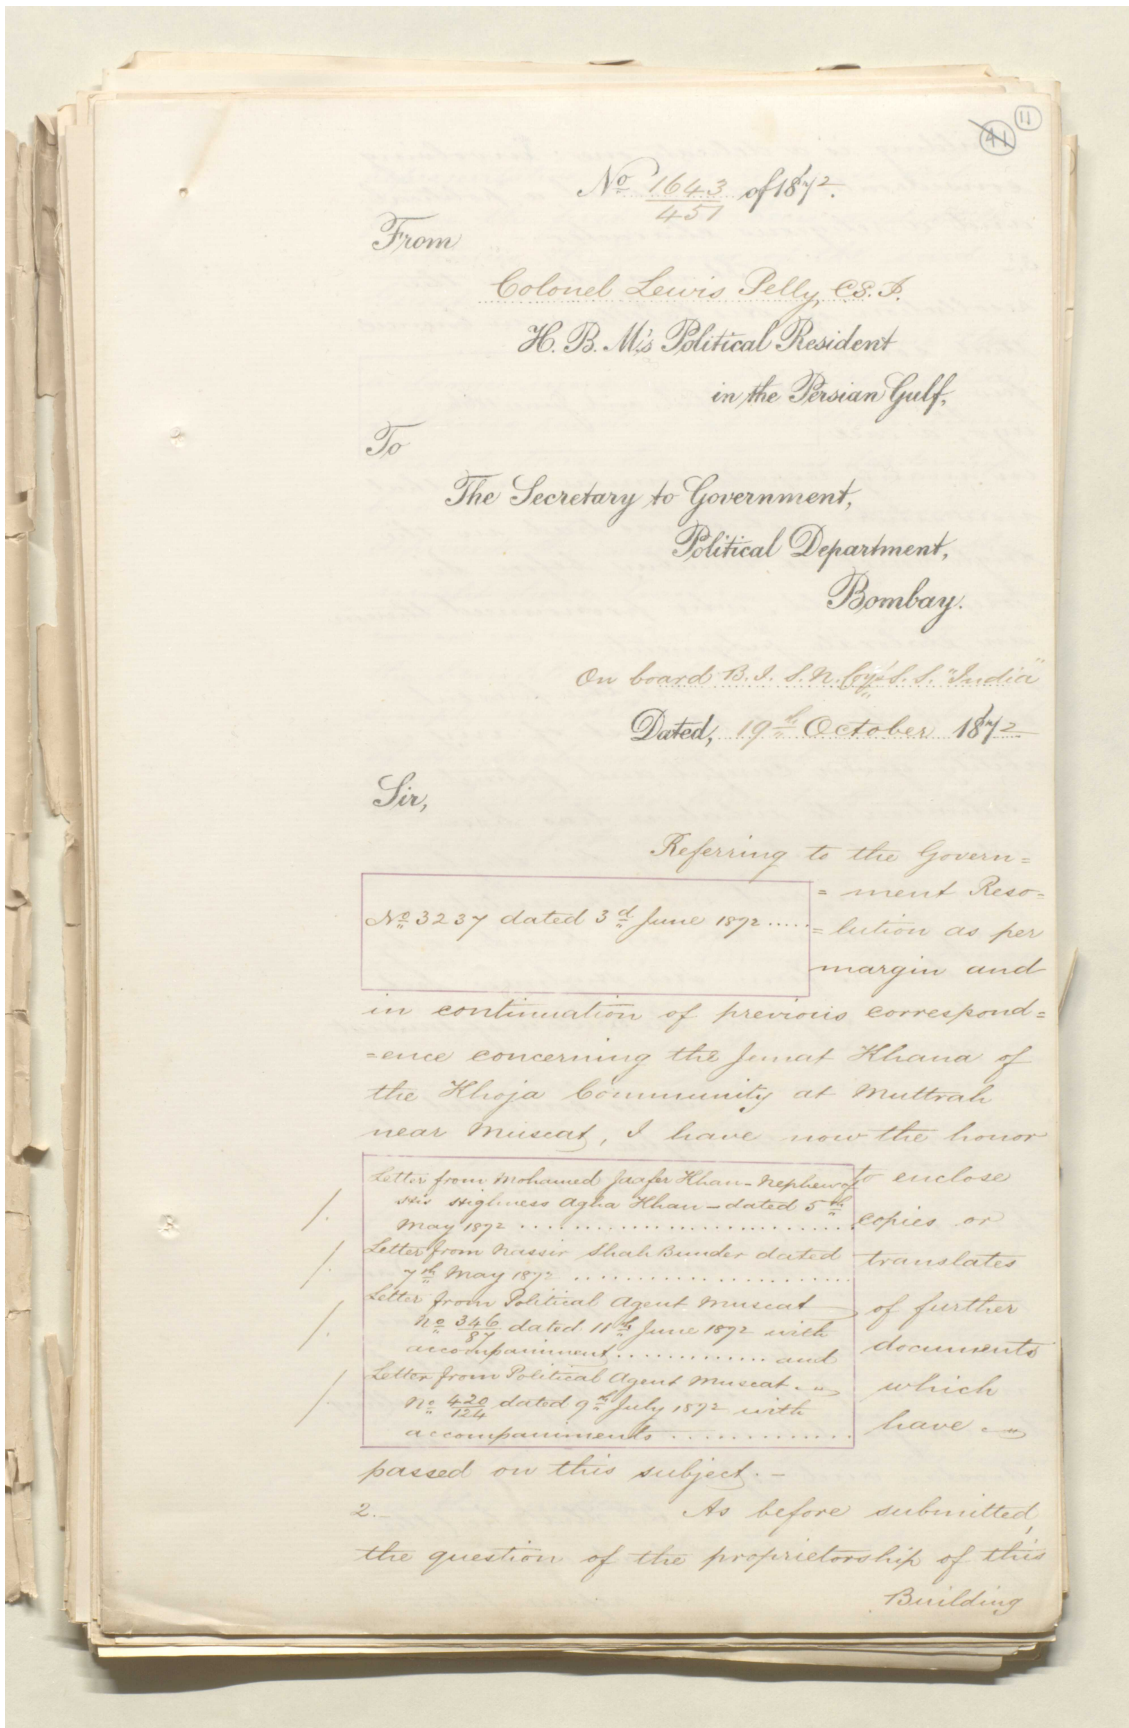 41 11
No 1643/451 of 1872.
From
Colonel Lewis Pelly, C.S.I.
H. B. M's Political Resident
in the Persian Gulf,
To
The Secretary to Government,
Political Department,
Bombay.
On board B. I. S. N. Coy's S. S. "India"
Dated, 19th October 1872
Sir,
Referring to the Govern=
=ment Reso=
No 3237 dated 3d June 1872 .....
=lution as per
margin and
in continuation of previous correspond=
=ence concerning the Jemat Khana of
the Khoja Community at Muttrah
near Muscat, I have now the honor
to enclose
copies or
translates
of further
documents
which
have
Letter from Mohamed Jaafer Khan - Nephew of
His Highness Agha Khan - dated 5th
May 1872 ..........................
Letter from Nassir Shah Bunder dated
7th May 1872 .....................
Letter from Political Agent Muscat
No 346/87 dated 11th June 1872 with
accompaniment .............. and
Letter from Political Agent Muscat
No 420/124 dated 9th July 1872 with
accompaniments .............
passed on this subject. -
2. As before submitted,
the question of the proprietorship of this
Building